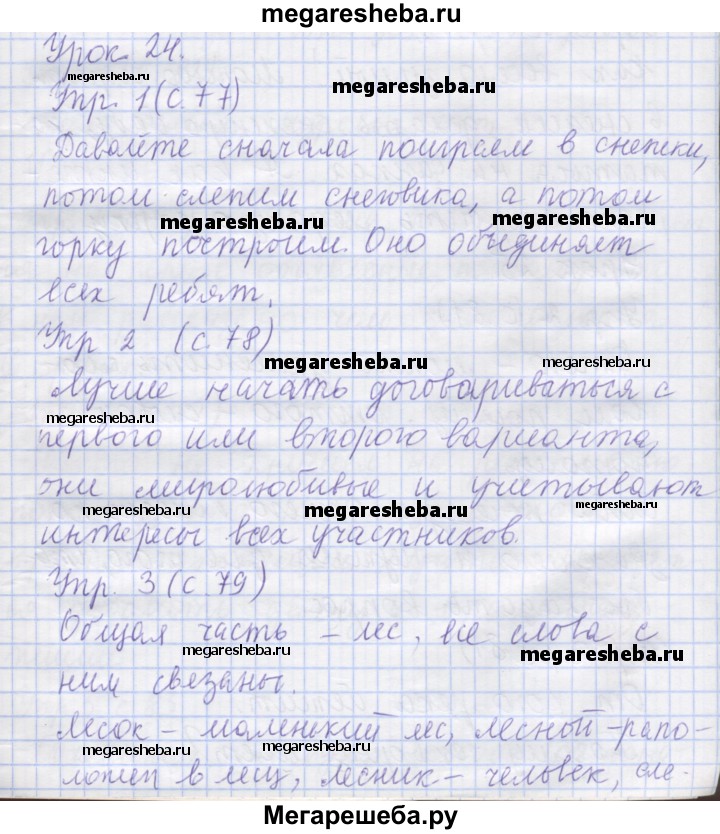 megaresheba.ru
Урок 24.
megaresheba.ru
megaresheba.ru
Упр. 1 (с. 77)
Давайте сначала поиграем в снежки,
потом слепим снеговика, а потом
megaresheba.ru
megaresheba.ru
горку построим. Оно объединяет
всех ребят.
Упр 2 (с. 78)
megaresheba.ru
megaresheba.ru
Лучше начать договариваться с
megaresheba.ru
первого или второго варианта,
они миролюбивые и учитывают
megaresheba.ru
megaresheba.ru
интересы всех участников.
Упр. 3 (с. 79)
Общая часть – лес, все слова с
megaresheba.ru
megaresheba.ru
ним связаны.
Лесок – маленький лес, лесной – рапо-
megaresheba.ru
megaresheba.ru
ложен в лесу, лесник – человек, сле-
Мегарешеба.ру